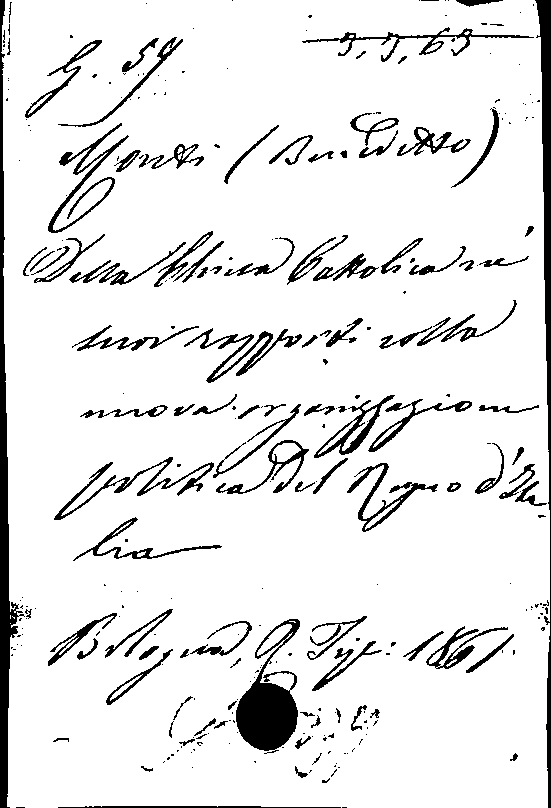 G. 59
3, 3, 63
Monti (Benedetto)
Della Chiesa Cattolica ne'
suoi rapporti colla
nuova organizzazione
politica del Regno d'Ita-
lia
Bologna, R. Tip: 1861.